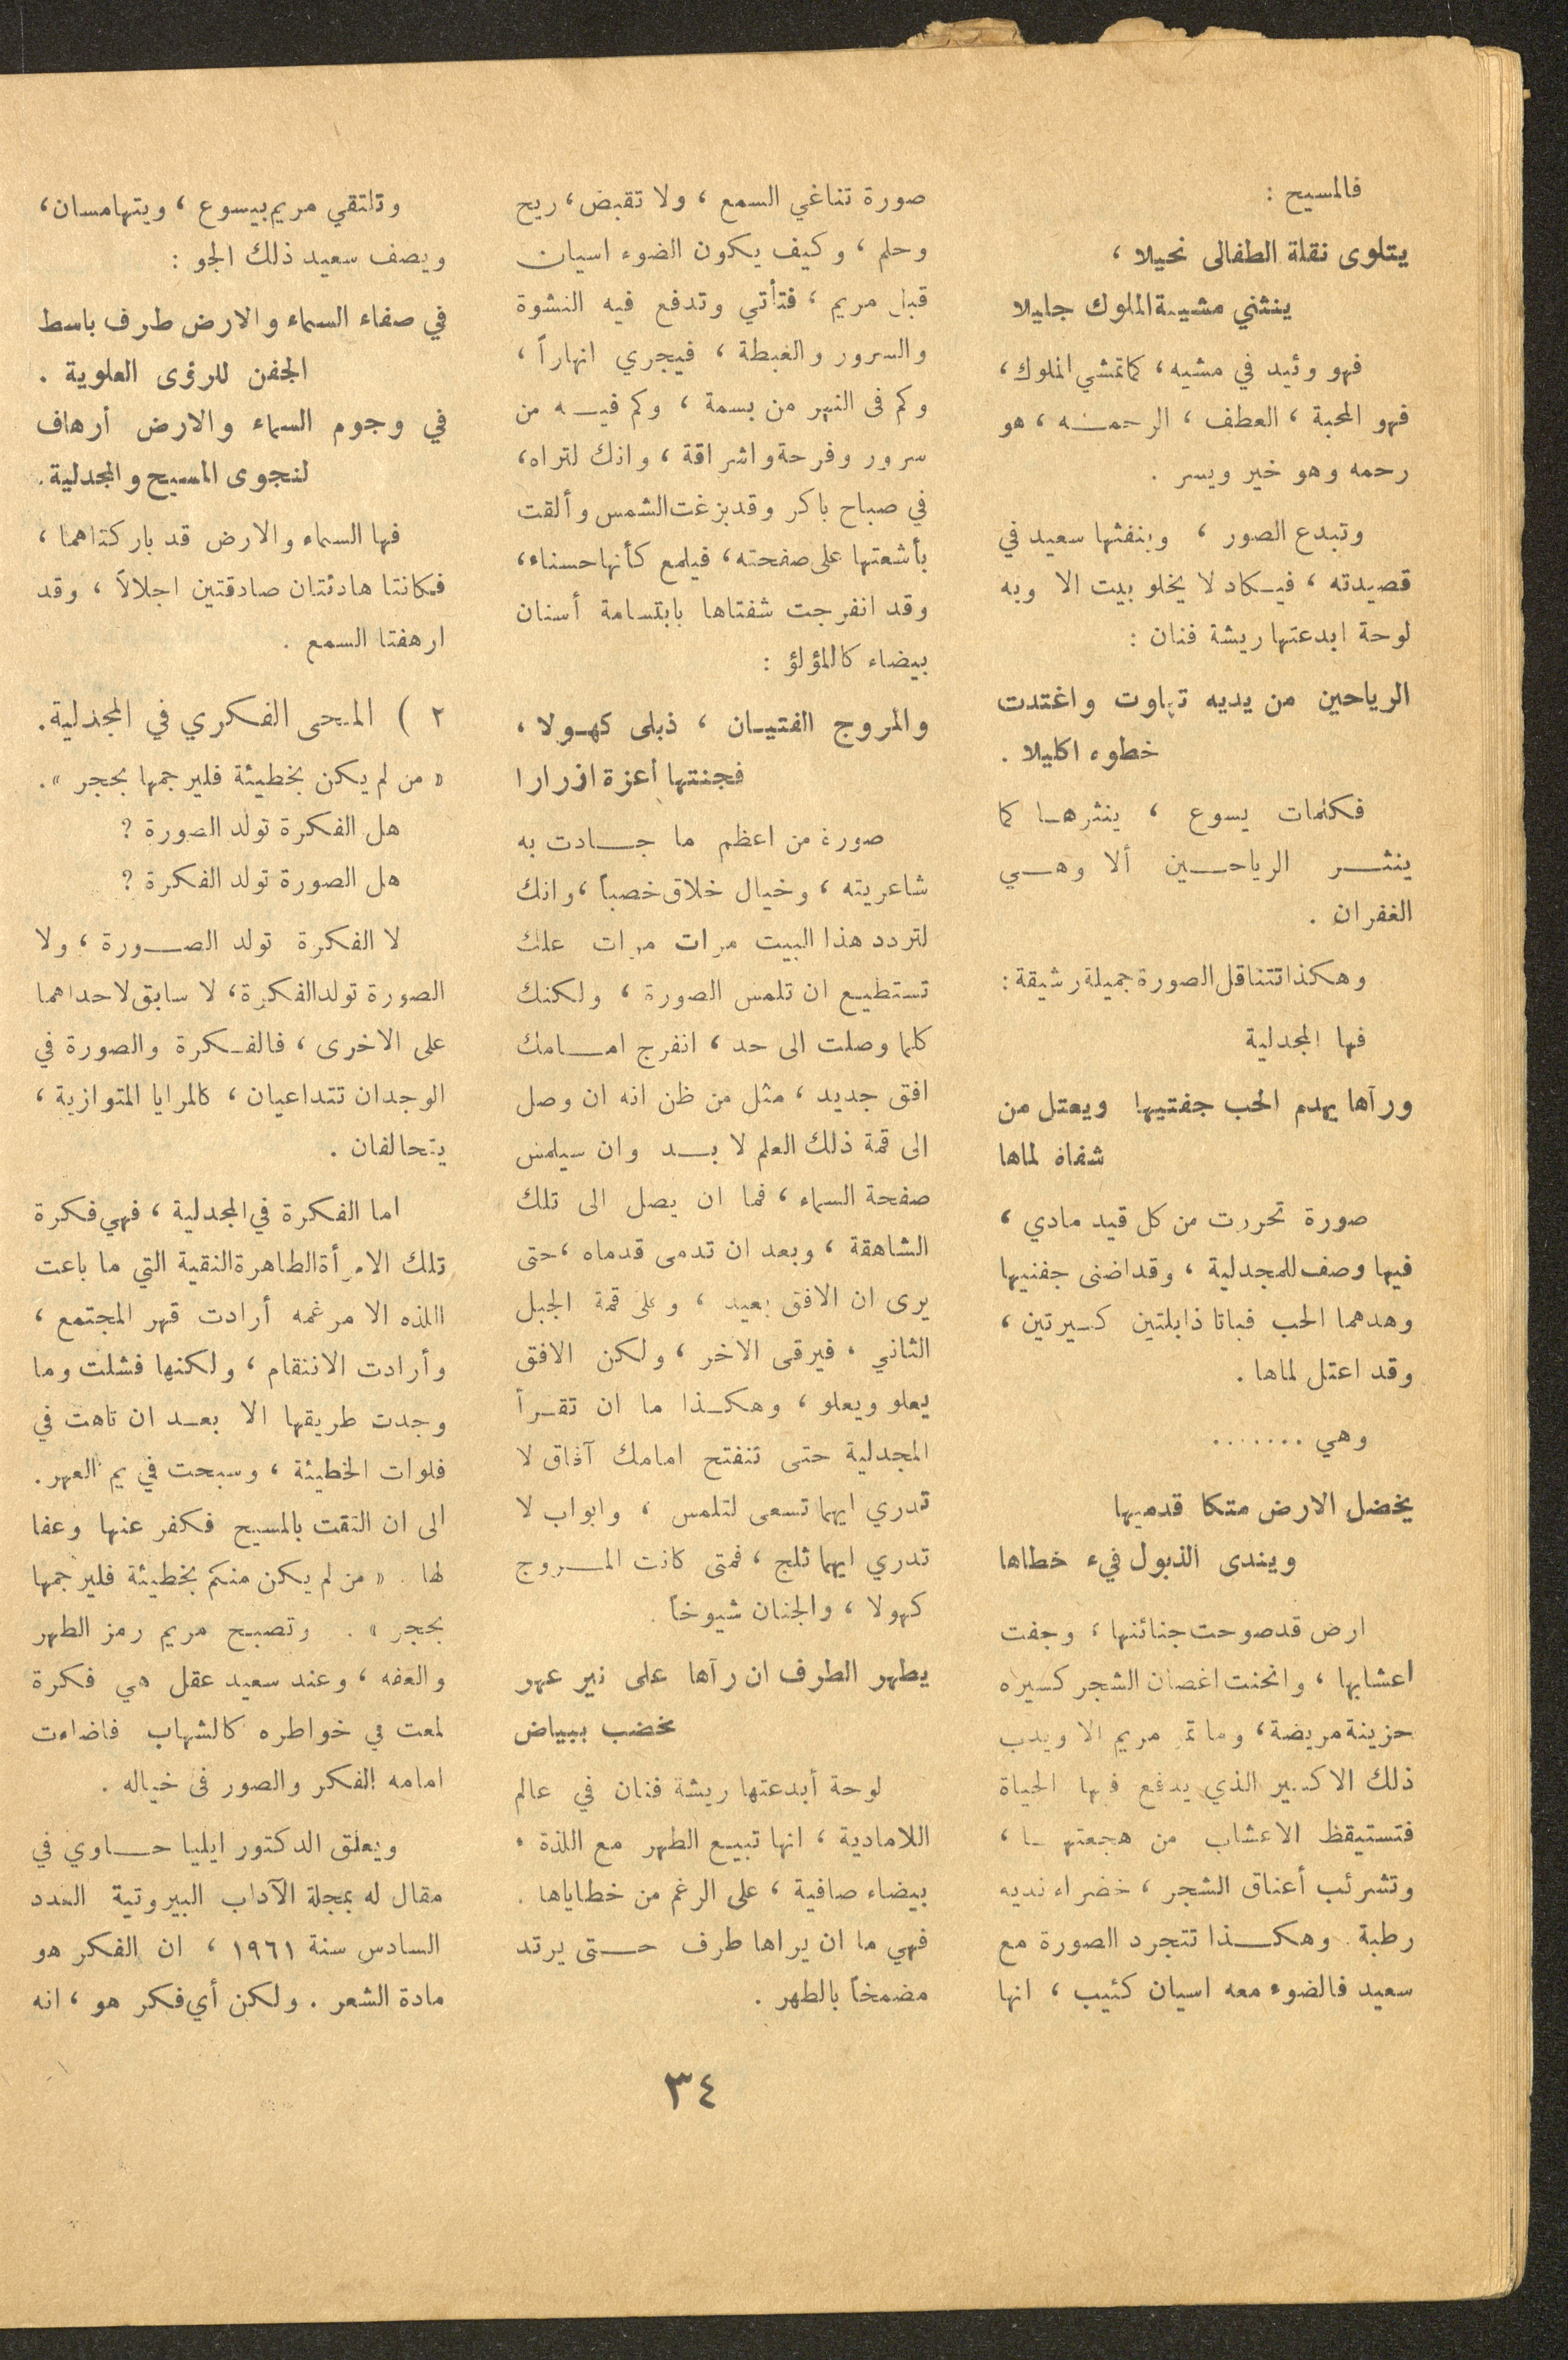 فالمسيح :
يتلوى نقلة الطفالى نحيلا ،
ينثني مشية الملوك جليلا
فهو وئيد في مشيه ، كما تمشي الملوك ،
فهو المحبة ، العطف ، الرحمـه ، هو
رحمه وهو خير ويسر .
وتبدع الصور ، وينفثها سعيد في
قصيدته ، فيـكاد لا يخلو بيت الا وبه
لوحة ابدعتها ريشة فنان :
الرياحين من يديه تهاوت واغتدت
خطوه اكليلا .
فكلمات يسوع ، ينثرهـا كما
ينثـر الرياحـين ألا وهـي
الغفران .
وهكذا تتناقل الصورة جميلة رشيقة :
فها المجدلية
ورآها يهدم الحب جفتيها ويعتل من
شفاه لماها
صورة تحررت من كل قيد مادي ،
فيها وصف للمجدلية ، وقد اضنى جفنيها
وهدهما الحب فباتا ذابلتين كسيرتين ،
وقد اعتل لماها .
وهي .......
يخضل الارض متكا قدميها
ويندى الذبول فيء خطاها
ارض قد صوحت جنائنها ، وجفت
اعشابها ، وانحنت اغصان الشجر كسيره
حزينة مريضة ، وما تمر مريم الا ويدب
ذلك الاكسير الذي يدفع فيها الحياة
فتستيقظ الاعشاب من هجعتهـا ،
وتشرئب أعناق الشجر ، خضراء نديه
رطبة . وهكـذا تتجرد الصورة مع
سعيد فالضوء معه اسيان كئيب ، انها
صورة تناغي السمع ، ولا تقبض ، ريح
وحلم ، وكيف يكون الضوء اسيان
قبل مريم ، فتأتي وتدفع فيه النشوة
والسرور والغبطة ، فيجري انهاراً ،
وكم في النهر من بسمة ، وكم فيـه من
سرور وفرحة واشراقة ، وانك لتراه ،
في صباح باكر وقد بزغت الشمس وألقت
بأشعتها على صفحته ، فيلمع كأنها حسناء ،
وقد انفرجت شفتاها بابتسامة أسنان
بيضاء كالمؤلؤ :
والمروج الفتيـان ، ذبلى كهـولا ،
فجنتها أعزة ازرارا
صورة من اعظم ما جـادت به
شاعريته ، وخيال خلاق خصباً ، وانك
لتردد هذا البيت مرات مرات علك
تستطيـع ان تلمس الصورة ، ولكنك
كلما وصلت الى حد ، انفرج امـامك
افق جديد ، مثل من ظن انه ان وصل
الى قمة ذلك العلم لا بـد وان سيلمس
صفحة السماء ، فما ان يصل الى تلك
الشاهقة ، وبعد ان تدمى قدماه ، حتى
يرى ان الافق بعيد ، وعلى قمة الجبل
الثاني ، فيرقى الاخر ، ولكن الافق
يعلو ويعلو ، وهكـذا ما ان تقـرأ
المجدلية حتى تنفتح امامك آفاق لا
تدري ايهما تسعى لتلمس ، وابواب لا
تدري ايهما ثلج ، فمتى كانت المـروج
كهولا ، والجنان شيوخاً .
يطهر الطرف ان رآها على نير عهر
مخضب ببياض
لوحة أبدعتها ريشة فنان في عالم
اللامادية ، انها تبيـع الطهر مع اللذة ،
بيضاء صافية ، على الرغم من خطاياها .
فهي ما ان يراها طرف حـتى يرتد
مضمخاً بالطهر .
وتلتقي مريم بيسوع ، ويتهامسان ،
ويصف سعيد ذلك الجو :
في صفاء السماء والارض طرف باسط
الجفن للرؤى العلوية .
في وجوم السماء والارض أرهاف
لنجوى المسيح والمجدلية .
فها السماء والارض قد باركتاهما ،
فكانتا هادئتان صادقتين اجلالاً ، وقد
ارهفتا السمع .
٢ ) المنحى الفكري في المجدلية .
« من لم يكن بخطيئة فليرجمها بحجر » .
هل الفكرة تولد الصورة ؟
هل الصورة تولد الفكرة ؟
لا الفكرة تولد الصـورة ، ولا
الصورة تولد الفكرة ، لا سابق لاحداهما
على الاخرى ، فالفـكرة والصورة في
الوجدان تتداعيان ، كالمرايا المتوازية ،
يتحالفان .
اما الفكرة في المجدلية ، فهي فكرة
تلك الامرأة الطاهرة النقية التي ما باعت
اللذه الا مرغمه أرادت قهر المجتمع ،
وأرادت الانتقام ، ولكنها فشلت وما
وجدت طريقها الا بعـد ان تاهت في
فلوات الخطيئة ، وسبحت في يم العهر .
الى ان التقت بالمسيح فكفر عنها وعفا
لها . « من لم يكن منكم بخطيئة فليرجمها
بحجر » . وتصبح مريم رمز الطهر
والعفه ، وعند سعيد عقل هي فكرة
لمعت في خواطره كالشهاب فاضاءت
امامه الفكر والصور في خياله .
ويعلق الدكتور ايليا حـاوي في
مقال له بمجلة الآداب البيروتية العدد
السادس سنة ١٩٦١ ، ان الفكر هو
مادة الشعر . ولكن أي فكر هو ، انه
٣٤